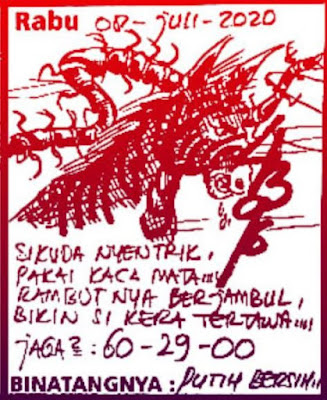 Rabu 08-JULI-2020
SIKUDA NYENTRIK,
PAKAI KACA MATA...
RAMBUTNYA BER-JAMBUL,
BIKIN SI KERA TERTAWA....
JAGA2 : 60-29-00
BINATANGNYA : PUTIH BERSIH...